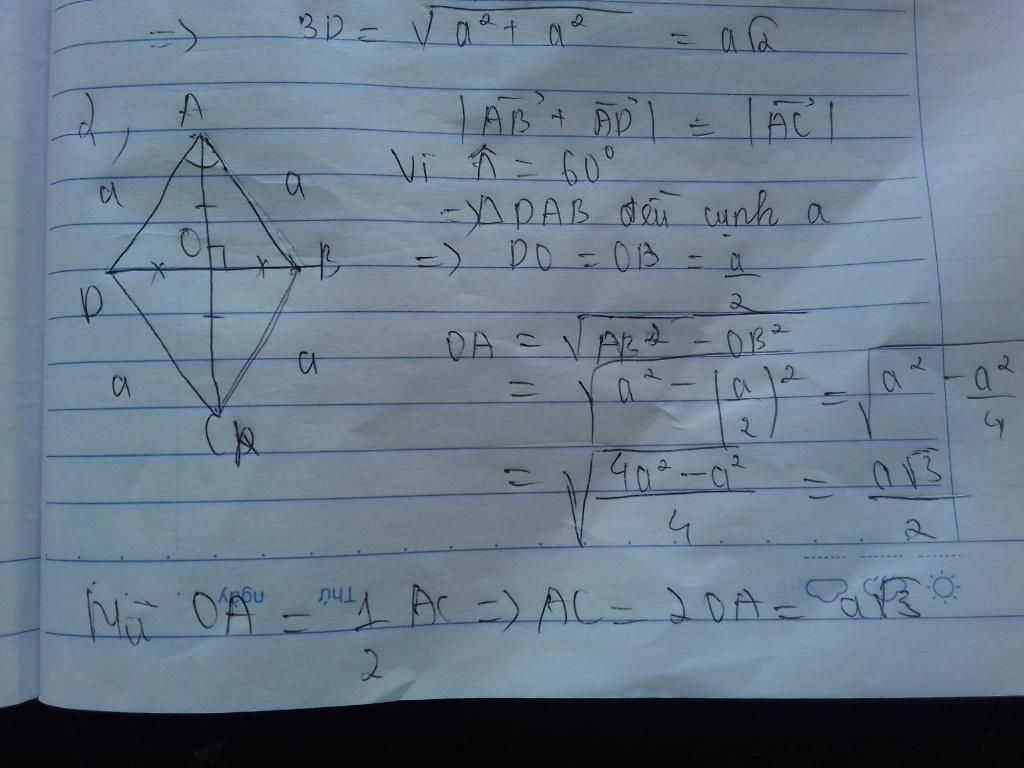 => BD = √(a² + a²) = a√2
2,
A
|AB→ + AD→| = |AC→|
a
a
Vì Â = 60°
=> Δ DAB đều cạnh a
O
D
B
=> DO = OB = a/2
OA = √(AB² - OB²)
a
a
= √(a² - (a/2)²) = √(a² - a²/4)
C
= √((4a² - a²)/4) = a√3/2
Thứ ngày
Mà OA = 1/2 AC => AC = 2OA = a√3